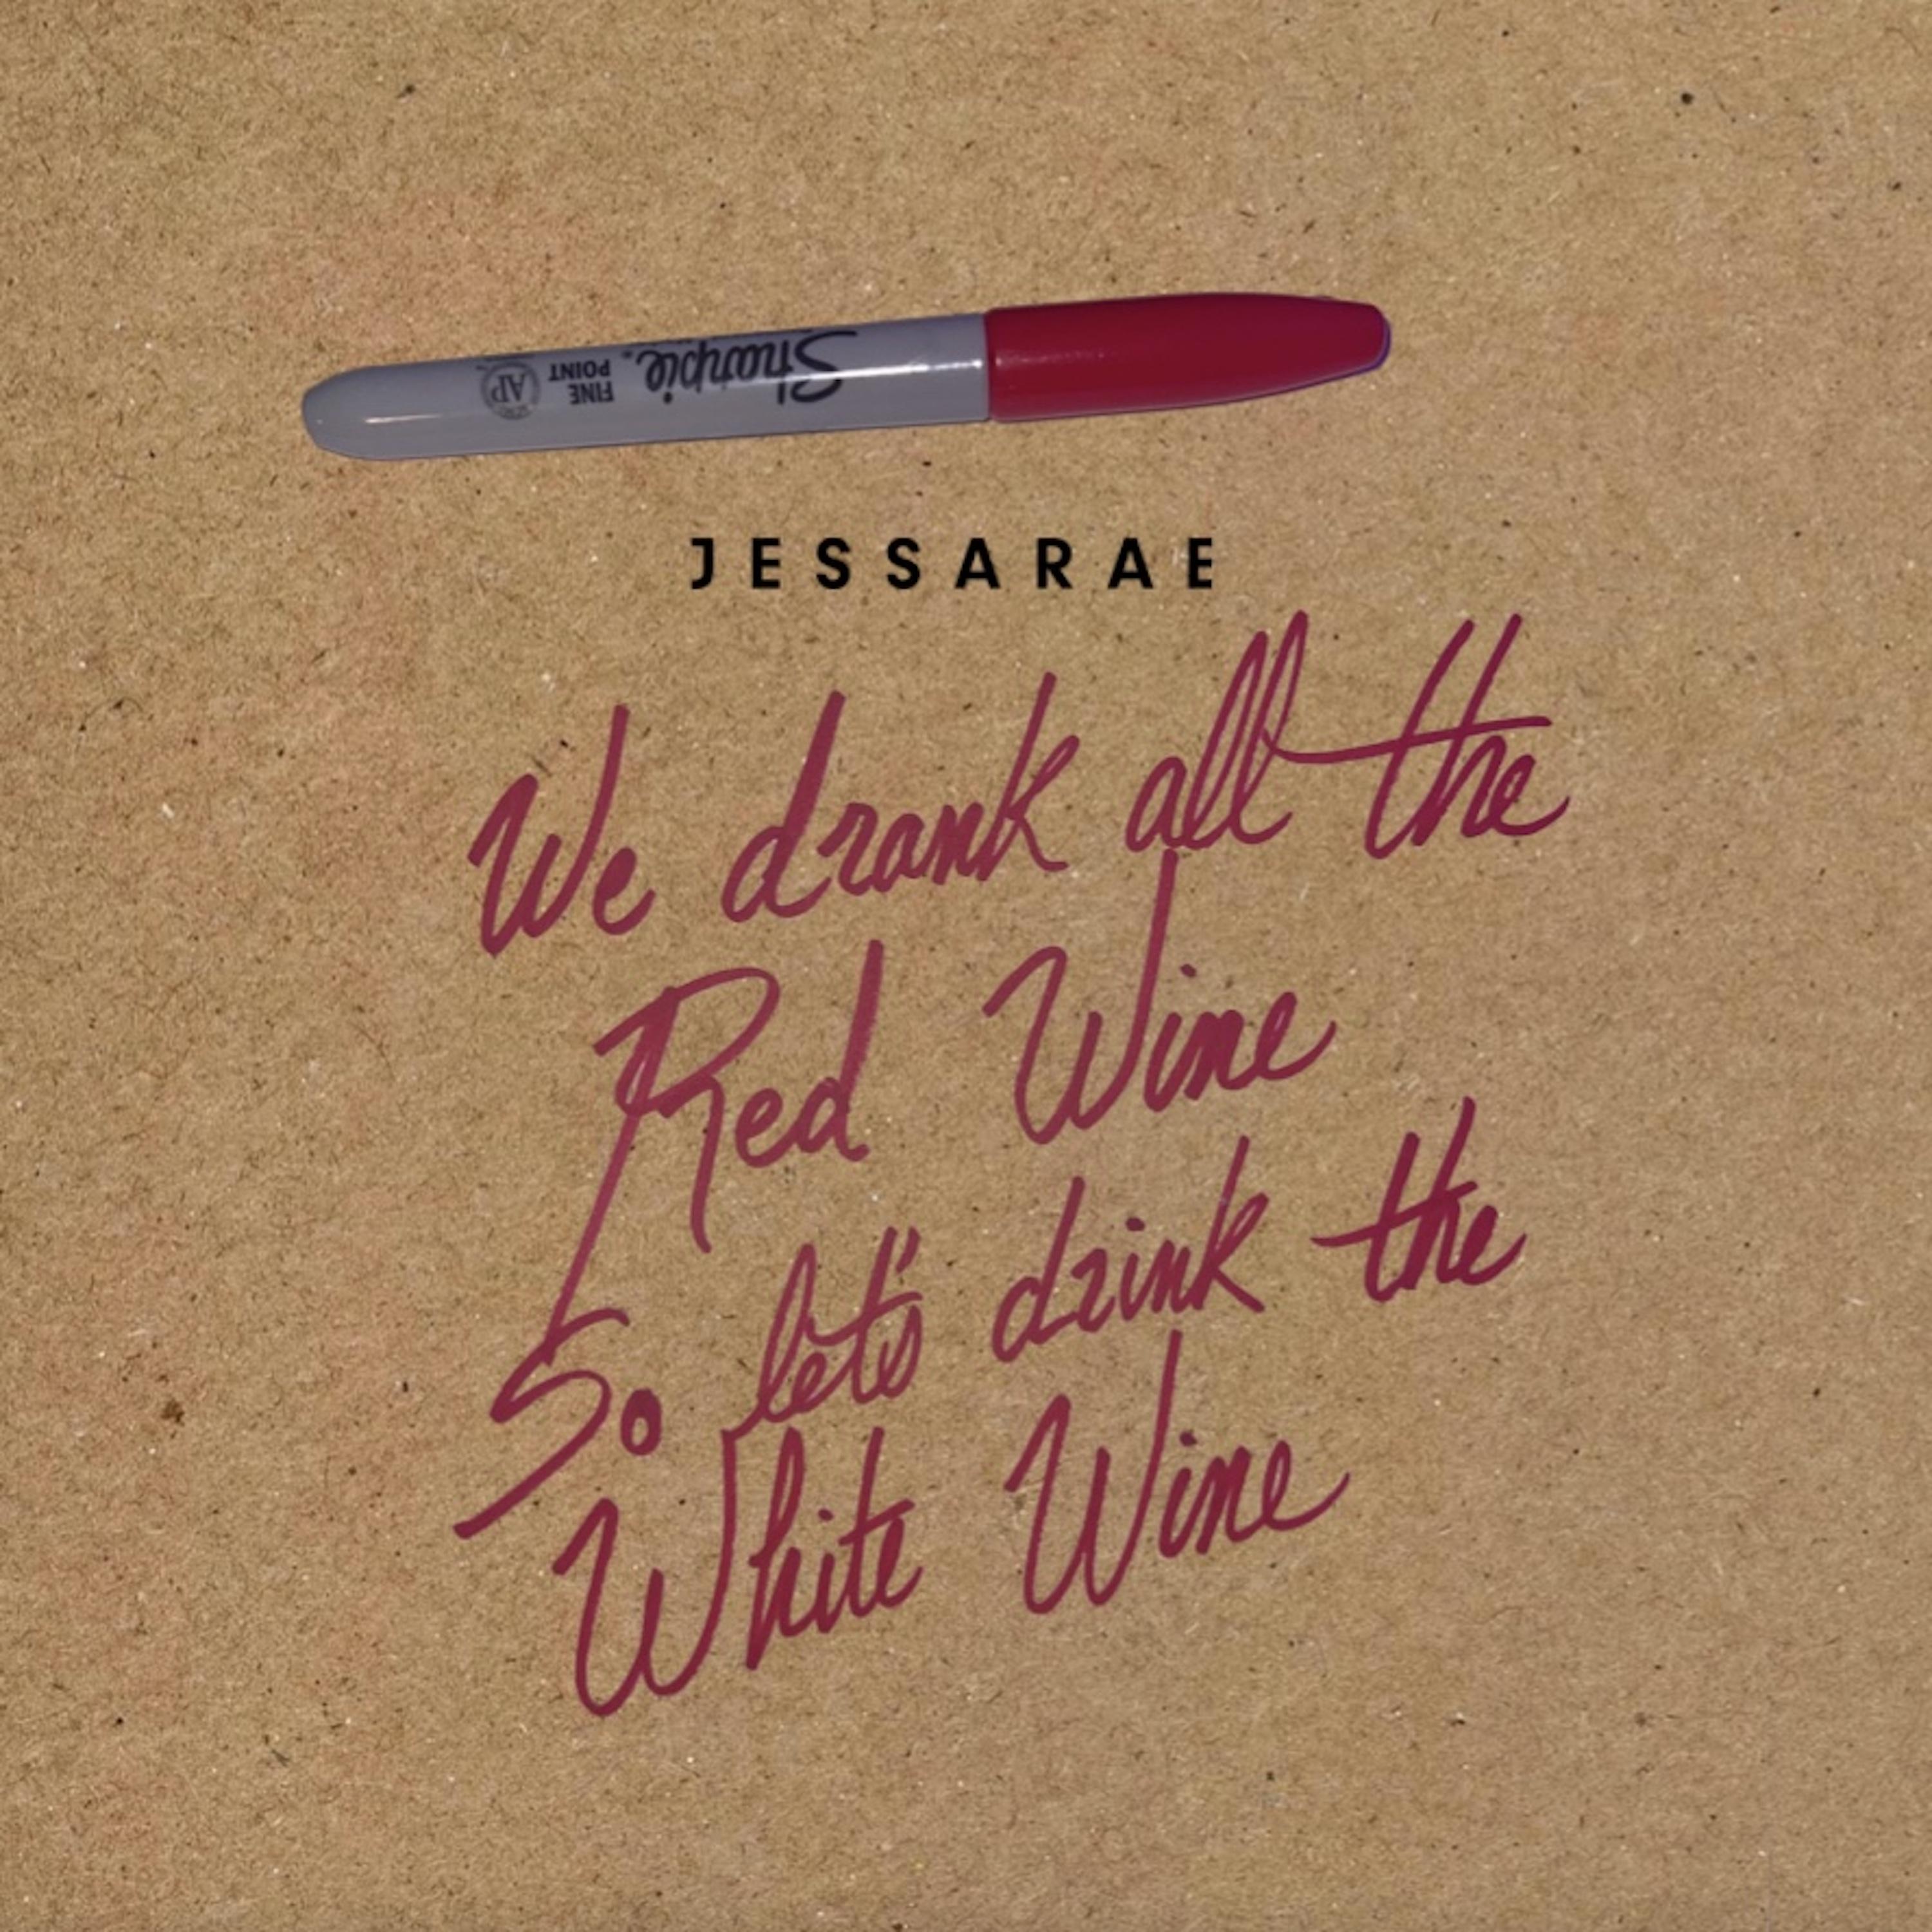 Sharpie
FINE
POINT
AP
JESSARAE
We drank all the
Red Wine
So let's drink the
White Wine